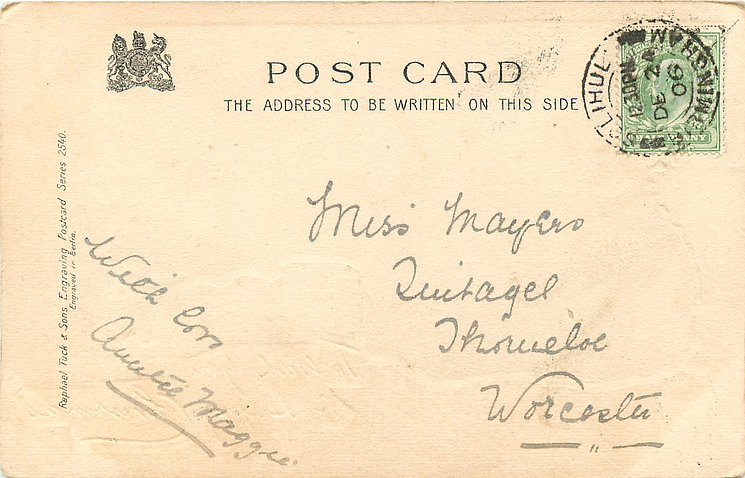 POST CARD
THE ADDRESS TO BE WRITTEN ON THIS SIDE
SOLIHUL
BIRMINGHAM
12.30PM
DE 24
06
PENNY
Miss Mayers
Thorneloe
Worcester
With love
Auntie Maggie.
Raphael Tuck & Sons Engraving Postcard Series 2540.
Engraved in Berlin.